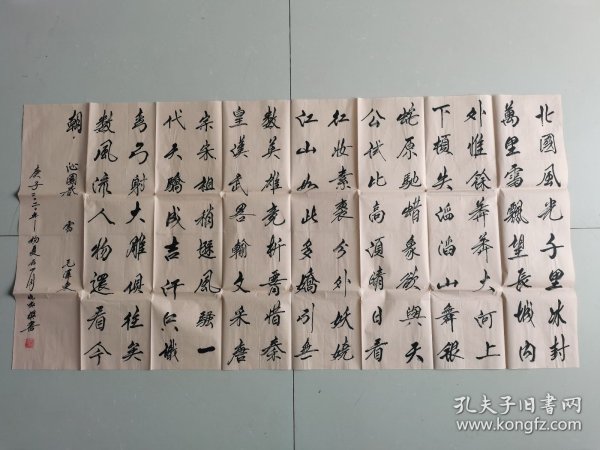 北國風光千里冰封
萬里雪飄望長城內
外惟餘莽莽大河上
下頓失滔滔山舞銀
蛇原馳蠟象欲與天
公試比高須晴日看
紅妝素裹分外妖嬈
江山如此多嬌引無
數英雄竞折腰惜秦
皇漢武略輸文采唐
宗宋祖稍遜風騷一
代天驕成吉汗只識
弯弓射大雕俱往矣
數風流人物還看今
朝
沁園春 雪 毛澤東
庚子二〇二〇年
孔夫子旧书网
www.kongfz.com